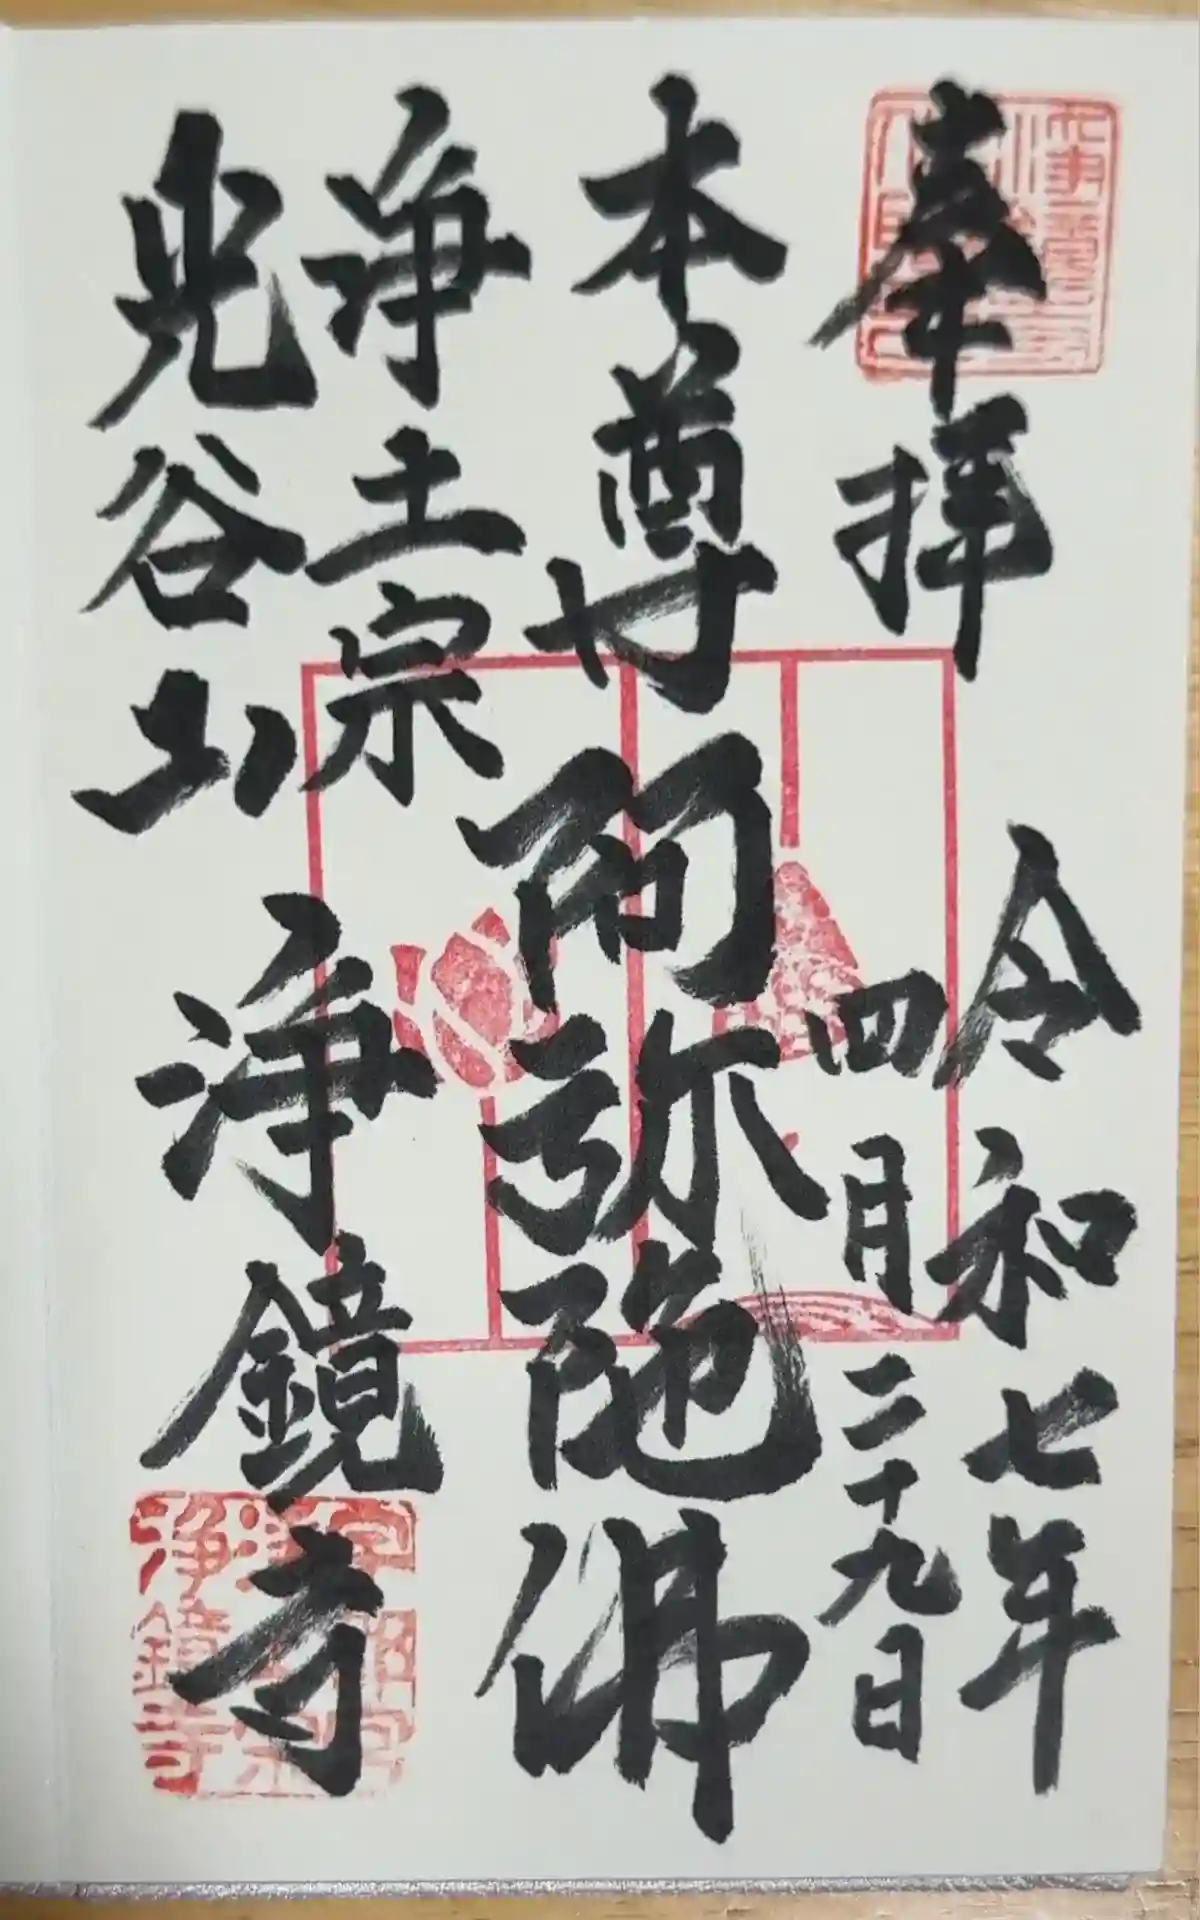 奉拝
令和七年
四月二十九日
本尊阿弥陀佛
浄土宗
谷山
浄鏡寺
浄鏡寺